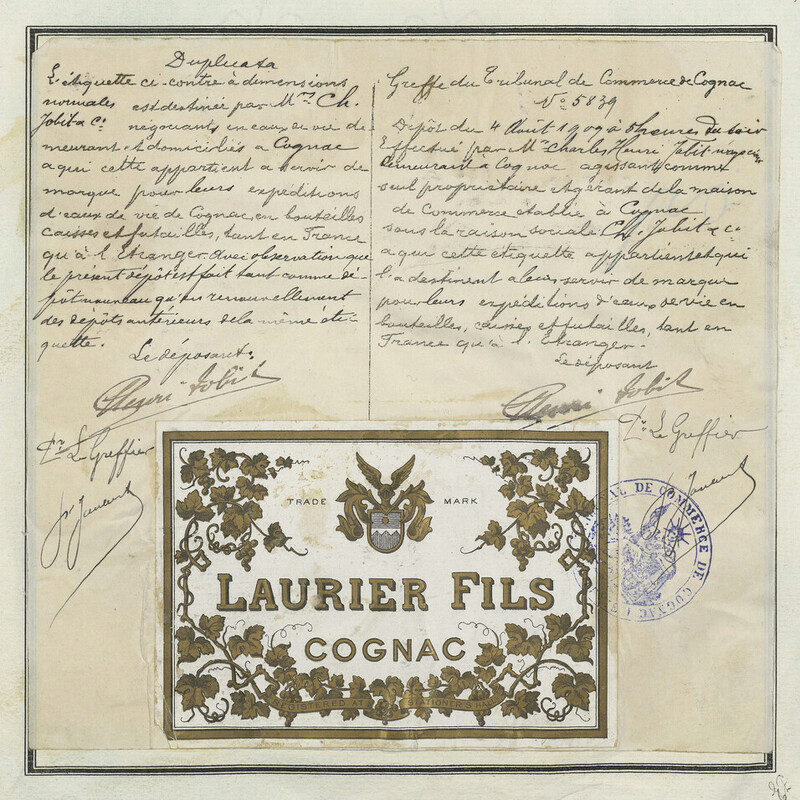 Duplicata
L'étiquette ci-contre à dimensions
normales est destinée par Mrs Ch.
Jobit & Co négociants en eaux de vie de-
meurant et domiciliés à Cognac
a qui cette appartient a servir de
marque pour leurs expéditions
d'eaux de vie de Cognac, en bouteilles
caisses et futailles, tant en France
qu'à l'Etranger. Avec observation que
le présent dépôt est fait tant comme dé-
pôt nouveau qu'en renouvellement
des dépôts antérieurs de la même éti-
quette.
Le déposant.
Henri Jobit
Pr Le Greffier
Greffe du Tribunal de Commerce de Cognac
No 5839
Dépôt du 4 Août 1909 à 6 heures du soir
Effectué par Mr Charles Henri Jobit négociant
demeurant à Cognac agissant comme
seul propriétaire et gérant de la maison
de Commerce établie à Cognac
sous la raison sociale Ch. Jobit & Co
a qui cette étiquette appartient et qui
l'a destinent a leur servir de marque
pour leurs expéditions d'eaux de vie en
bouteilles, caisses et futailles, tant en
France qu'à l'Etranger.
Le déposant
Henri Jobit
Pr Le Greffier
TRADE MARK
LAURIER FILS
COGNAC
REGISTERED AT STATIONER'S HALL
TRIBUNAL DE COMMERCE DE COGNAC